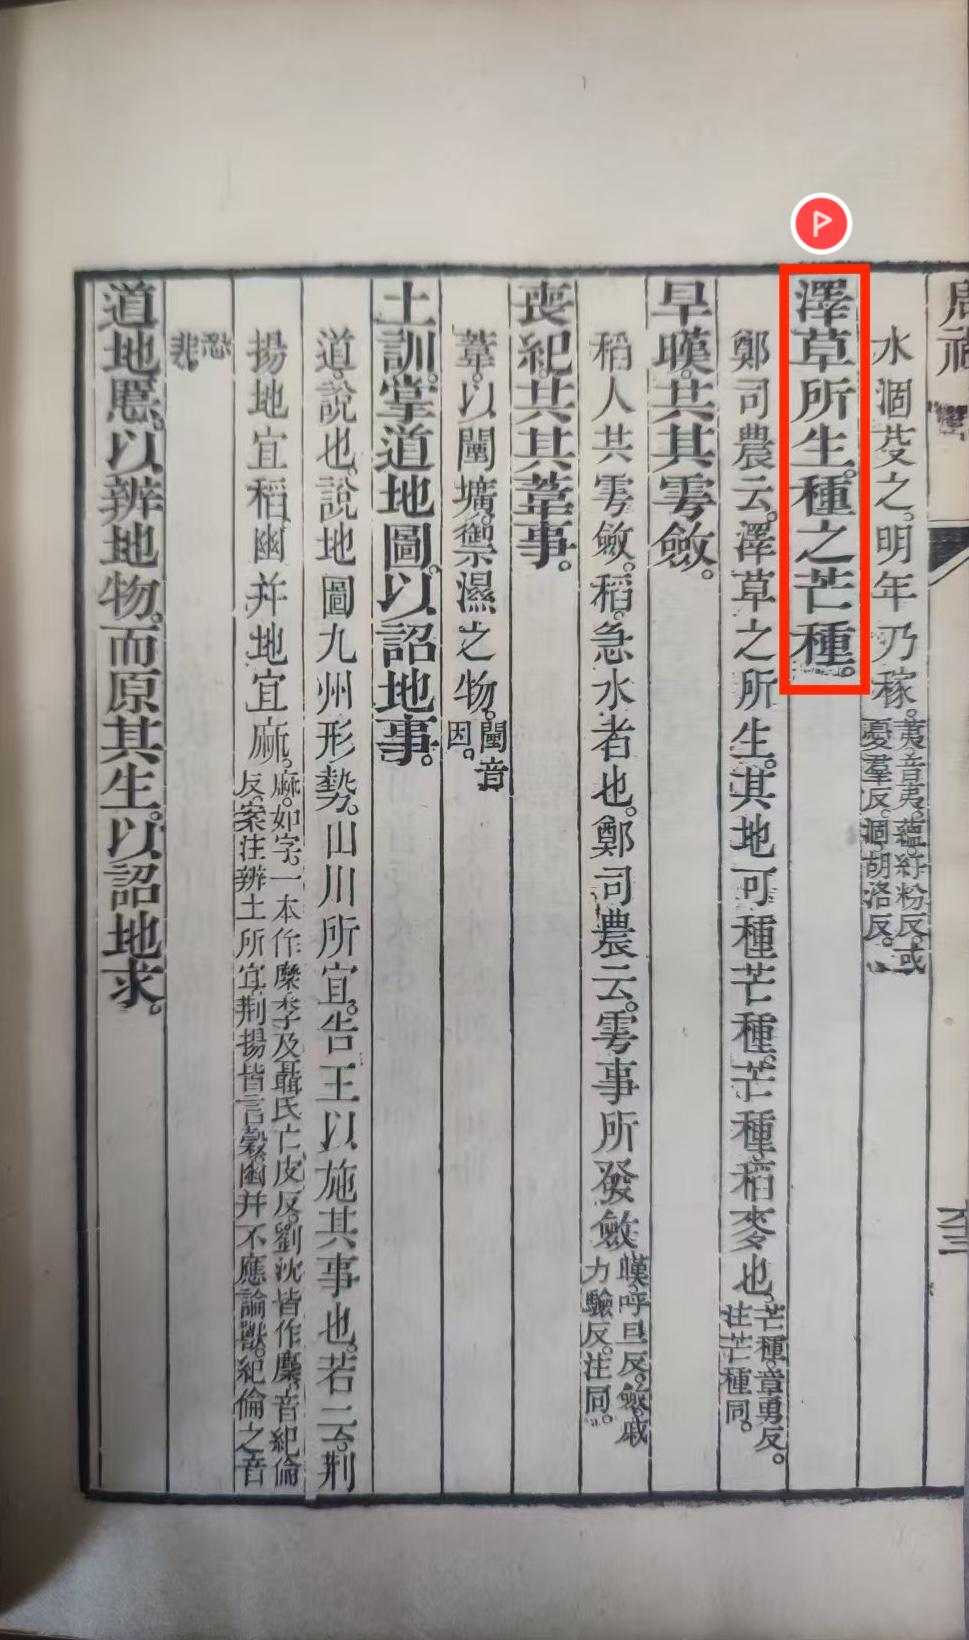 周禮
水涸芟之。明年乃稼。荑音夷。蘊紆粉反。或憂羣反。涸胡洛反。
澤草所生。種之芒種。
鄭司農云。澤草之所生。其地可種芒種。芒種稻麥也。芒種。章勇反。注芒種同。
旱暵。共其雩斂。
稻人共雩斂。稻。急水者也。鄭司農云。雩事所發斂。暵呼旦反。斂戚力驗反。注同。
喪紀共其葦事。
葦。以闉壙。禦濕之物。闉音因。
土訓。掌道地圖。以詔地事。
道。說也。說地圖九州形勢。山川所宜。告王以施其事也。若云。荆
揚地宜稻。幽并地宜麻。麻。如字。一本作穈。李及聶氏亡皮反。劉沈皆作麇。音紀倫反。案注辨土所宜。荆揚皆言穀。幽并不應論獸。紀倫之音
恐非
道地慝。以辨地物。而原其生。以詔地求。